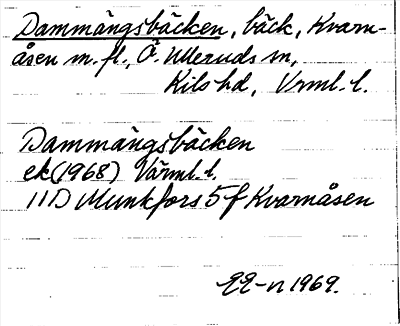 Dammängsbäcken, bäck, Kvarn-
åsen m. fl., Ö. Ulleruds sn,
Kils hd, Vrml. l.
Dammängsbäcken
ek (1968) Värml. l.
11D Munkfors 5f Kvarnåsen
1969.